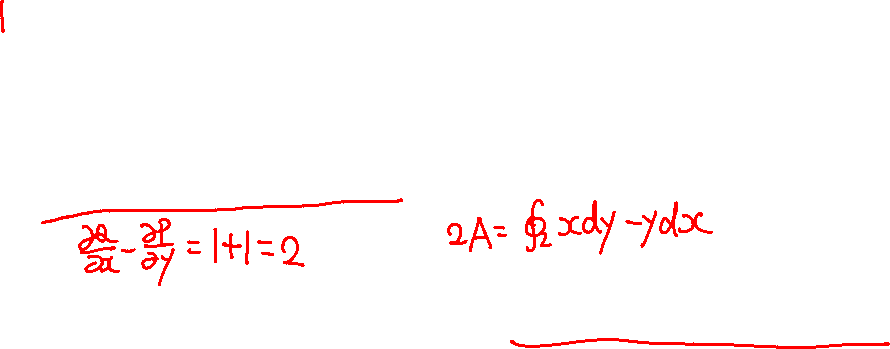 ∂Q/∂x - ∂P/∂y = 1+1 = 2
2A = ∮ xdy - ydx